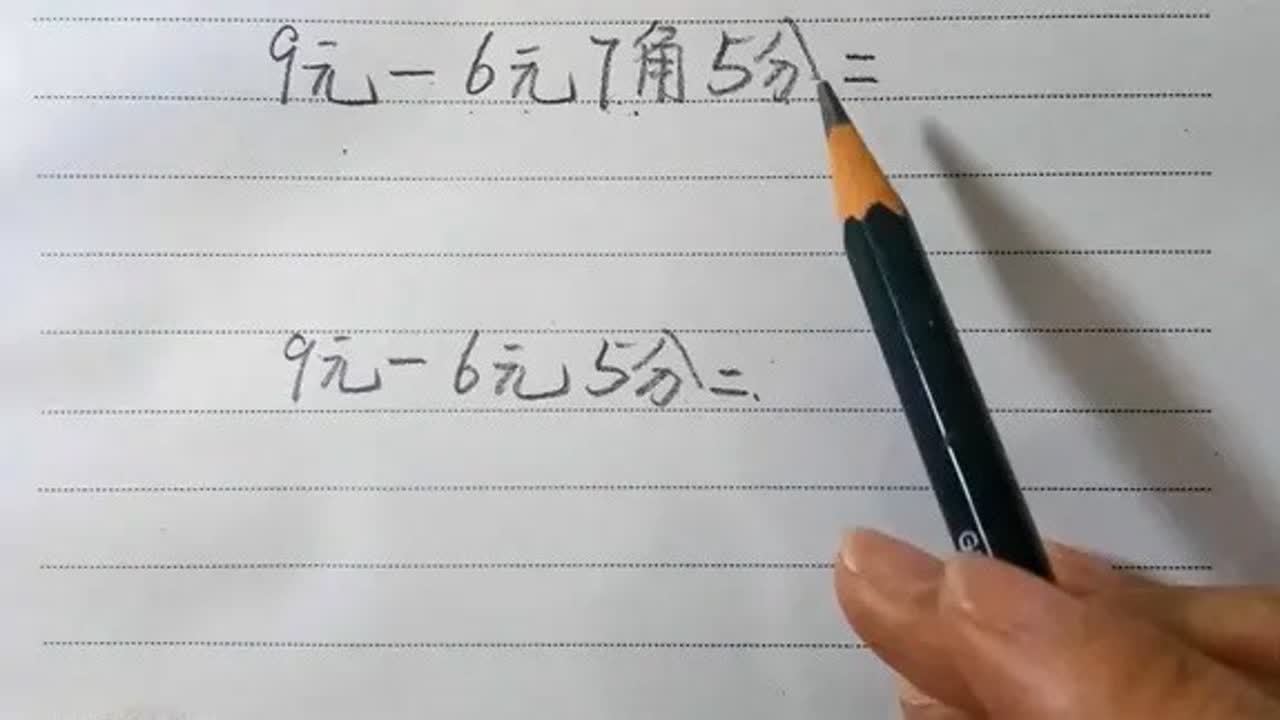 9元-6元7角5分=
9元-6元5分=
G